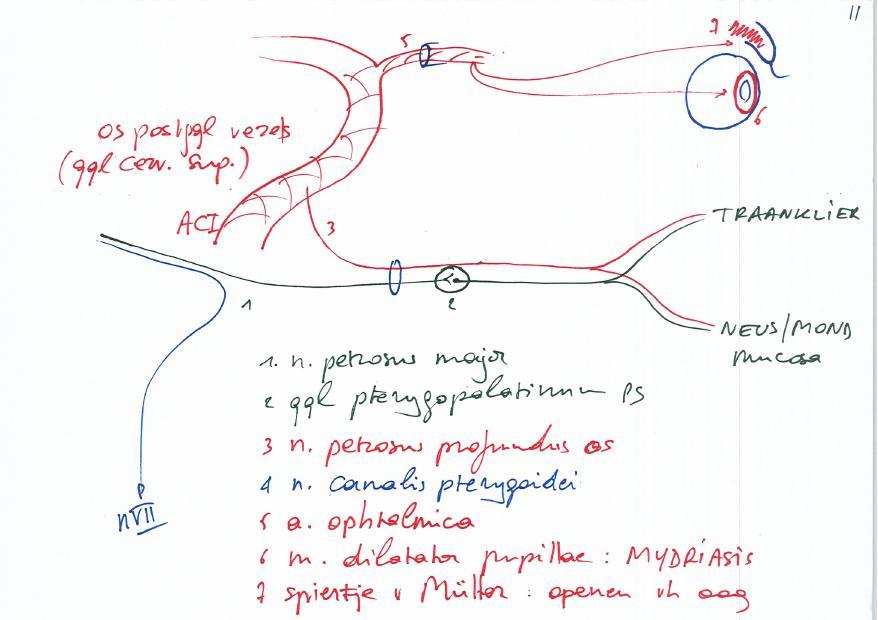 11
5
7
6
os postggl vezels
(ggl cerv. sup.)
ACI
3
TRAANKLIER
1
2
NEUS/MOND
mucosa
1. n. petrosus major
2 ggl pterygopalatinum PS
3 n. petrosus profundus os
4 n. canalis pterygoidei
5 a. ophtalmica
6 m. dilatator pupillae : MYDRIASIS
7 spiertje v Müller : openen vh oog
nVII